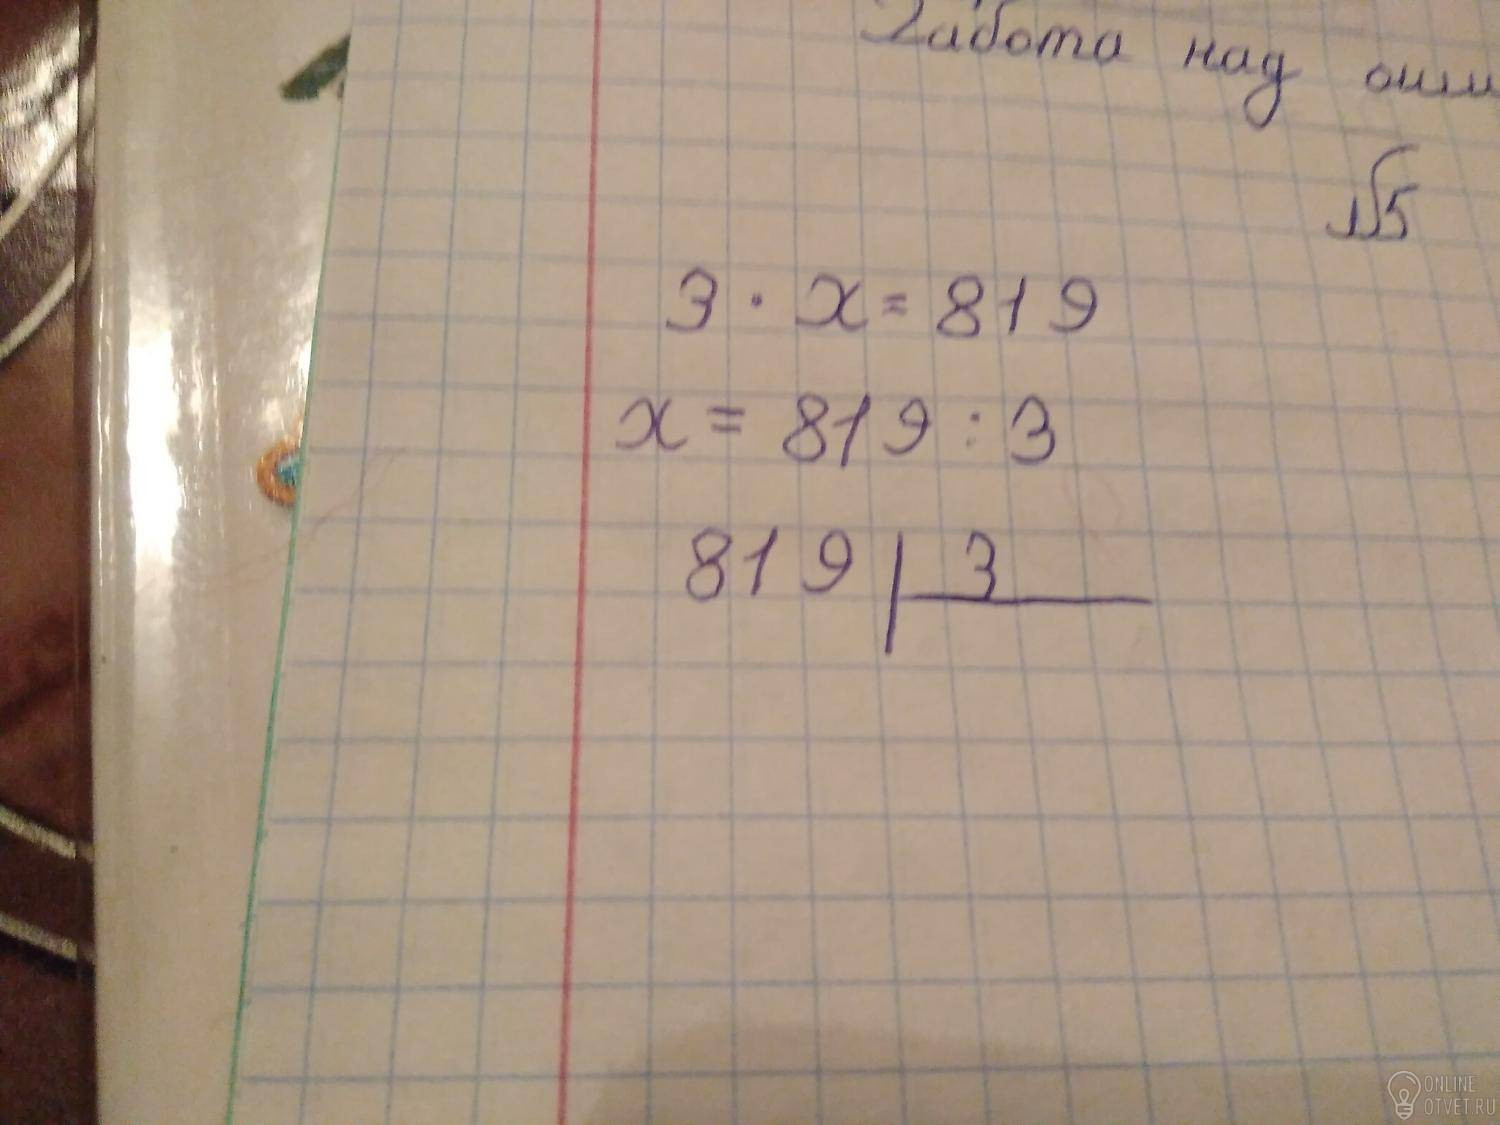 Работа над
№5
3 · x = 819
x = 819 : 3
819 | 3
ONLINE
OTVET.RU